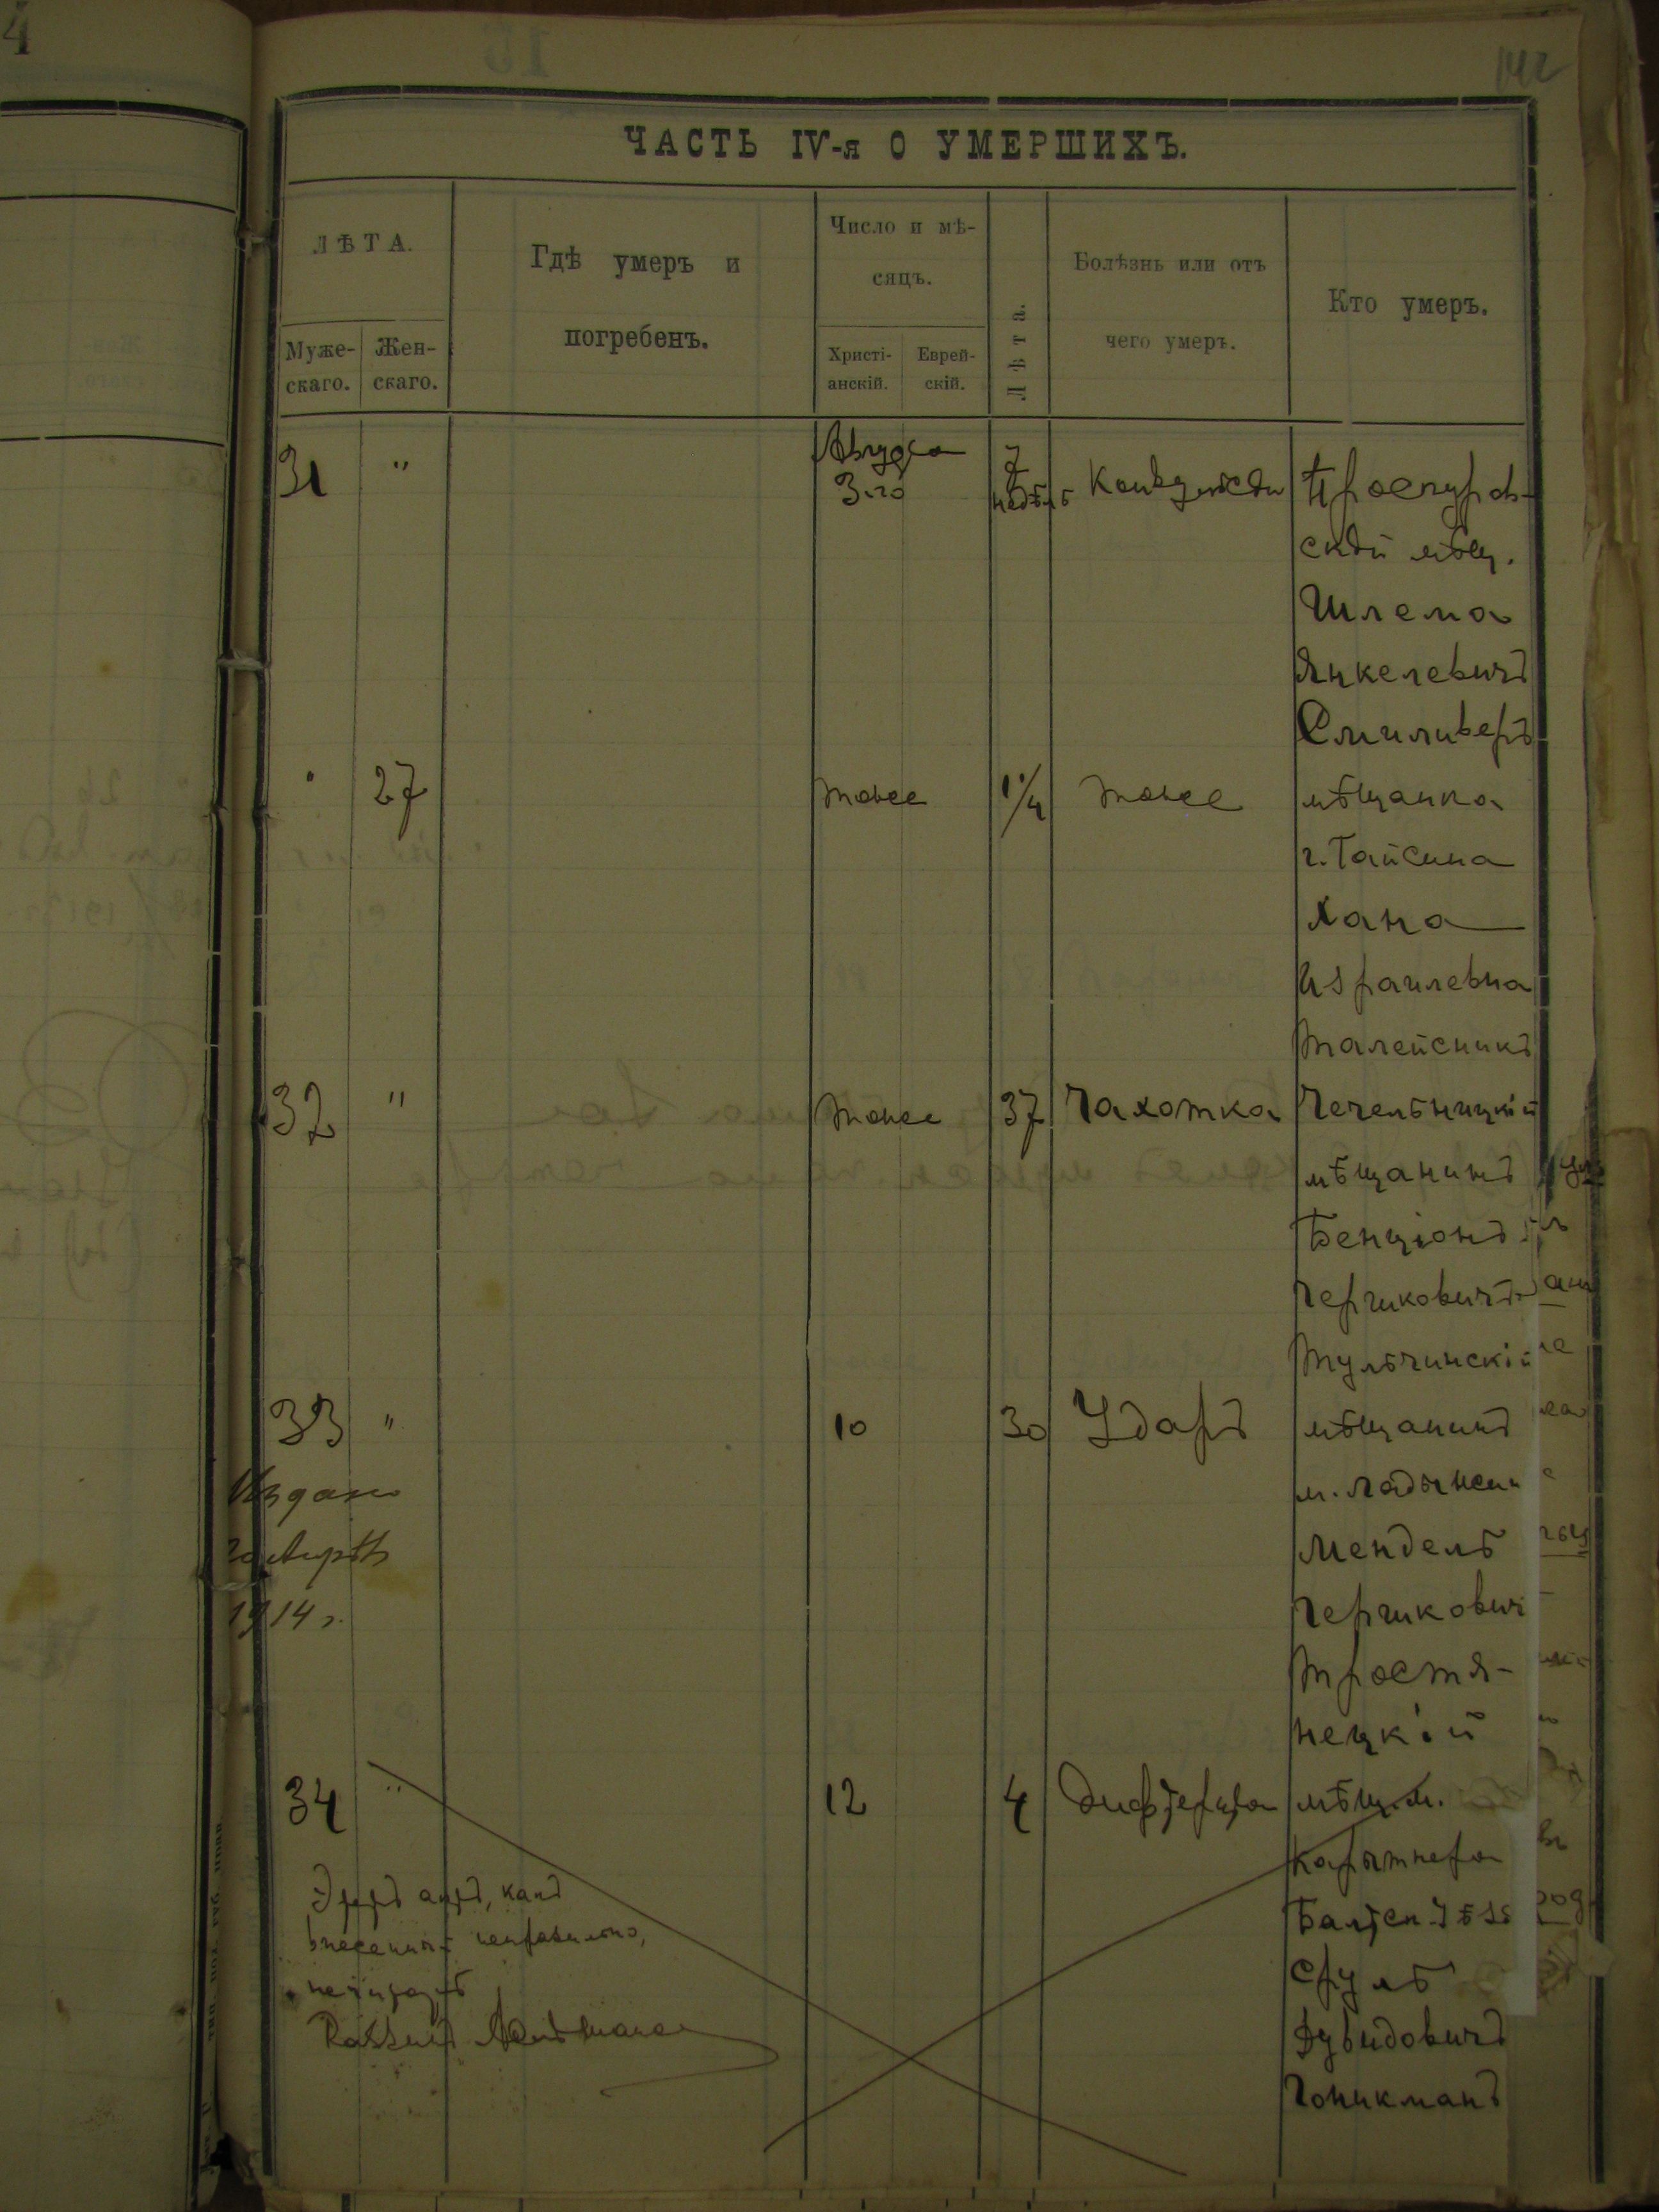 4
142
ЧАСТЬ IV-я О УМЕРШИХЪ.
ЛѢТА.
Муже-
скаго.
Жен-
скаго.
Гдѣ умеръ и
погребенъ.
Число и мѣ-
сяцъ.
Христі-
анскій.
Еврей-
скій.
Лѣта.
Болѣзнь или отъ
чего умеръ.
Кто умеръ.
31 " Августа
3-го 7
недѣль Проскуров-
скій мѣщ.
Шлема
Янкелевичъ
Смиливеръ
" 27 тоже 1 1/4 тоже мѣщанка
г. Гайсина
Хана
Израилевна
Талейсникъ
32 " тоже 37 Чахотка Чечельницкій
мѣщанинъ
Бенціонъ
Гершковичъ
Тульчинскій
33 " 10 30 Ударъ мѣщанинъ
м. Ладыжени
Мендель
Гершкович
Тростя-
нецкій
1914 г.
34 " 12 4 Дифтеритъ мѣщ. м.
Балт. у.
Сруль
Дувидовичъ
Гоникманъ
Этотъ актъ, какъ
внесенный неправильно,
не читать
Раввинъ